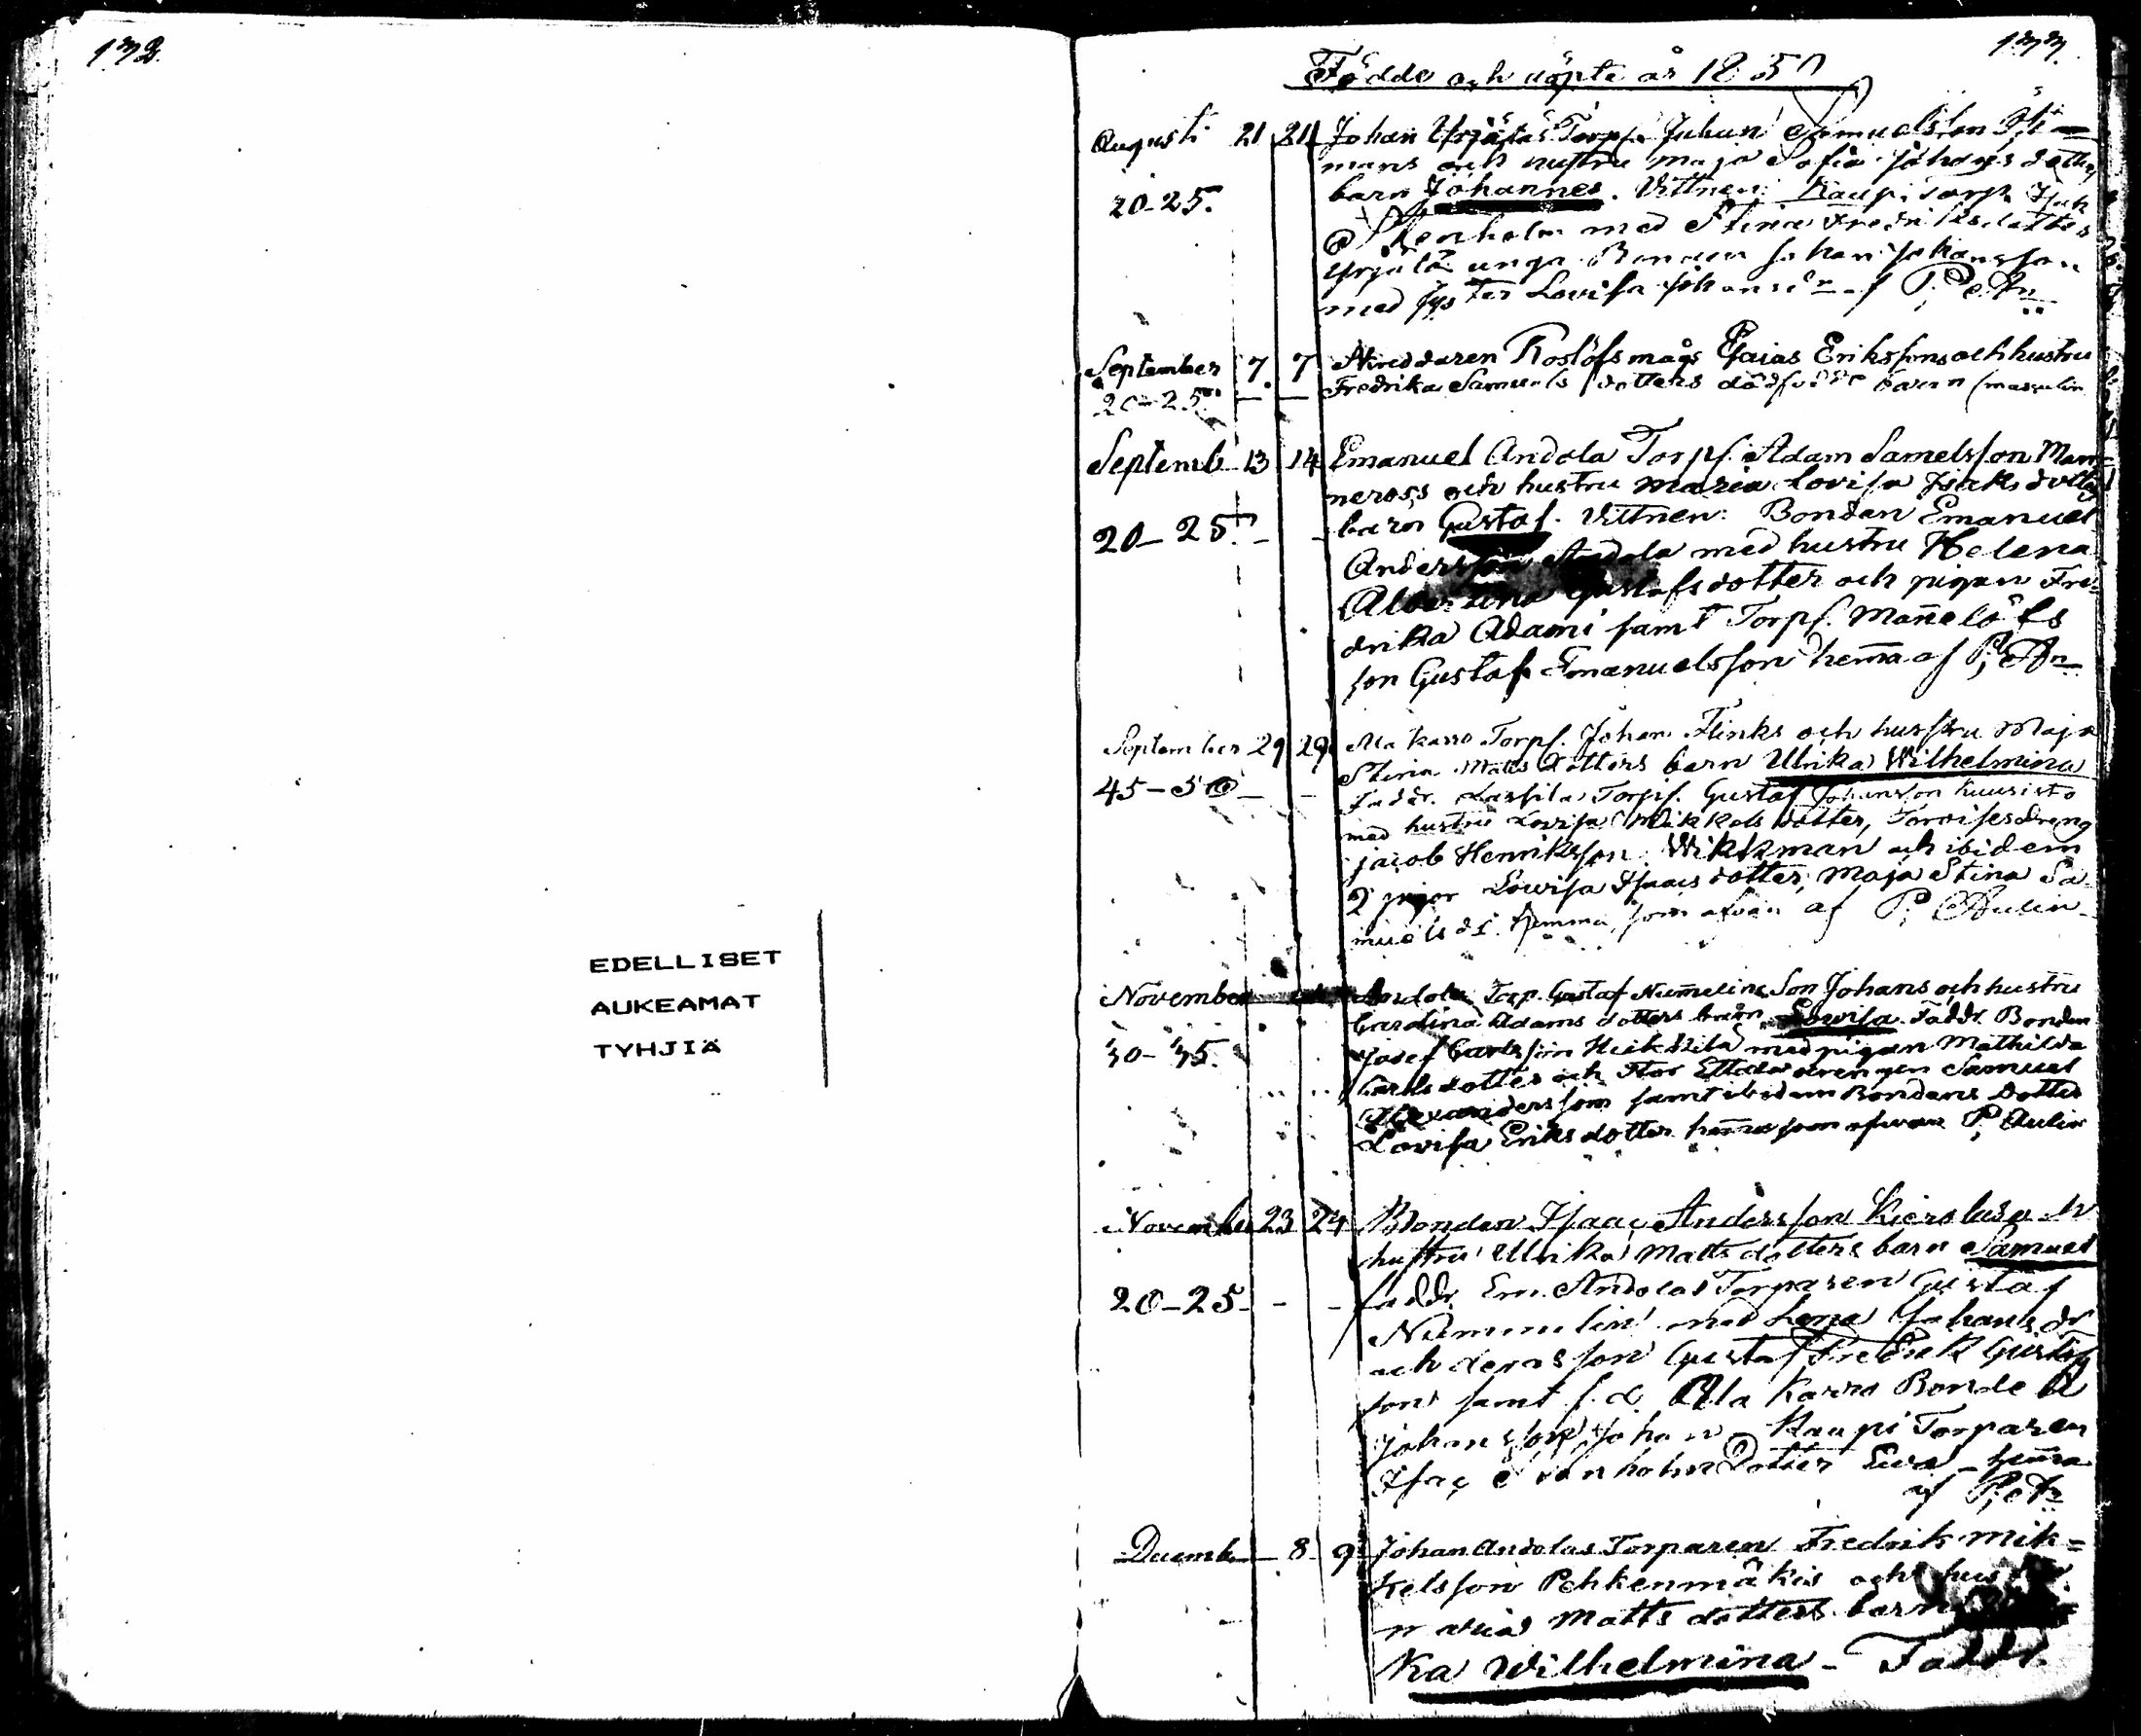 132.
EDELLISET
AUKEAMAT
TYHJIÄ
133.
Födde och döpte år 1850
Augusti 21 21 Johan Yrjäläs Torp. Johan Samuelsson
mans och hustru Maja Sofia Johans dotters
20-25. barn Johannes. Vittnen: Kaupi Torp. Isak
med Stina Fredriksdotter
Yrjälä unga Bonden Johan Johansson
med syster Lovisa af P:
September 7. 7 Skreddaren Roslöfs mågs Esaias Erikssons och hustru
20-25. Fredrika Samuels dotters dödfödde barn (masculin
Septemb 13 14 Emanuel Andola Torp. Adam Samelsson Man
neross och hustru Maria Lovisa Isaks dotters
20-25 barn Gustaf. Vittnen: Bonden Emanuel
Andersson Andola med hustru Helena
Albertina Gustafsdotter och pigan Fre-
drika Adami samt Torp. Mañelöfs
son Gustaf Emanuelsson hem̄a af P:
September 29 29 Ala Karro Torp. Johan Flinks och hustru Maja
Stina Matts dotters barn Ulrika Wilhelmina
45-50 Faddr. Lassila Torp. Gustaf Johansson Kuusisto
med hustru Lovisa Mikkels dotter, dreng
Jacob Henriksson Wikman och ibidem
2 pigor Lowisa Isaacs dotter, Maja Stina Sa-
muels dr. hemma som ofvan af P: Aulin
November Andola Torp. Gustaf Num̄elins Son Johans och hustru
Carolina Adams dotters barn Lowisa Faddr. Bonden
30-35. Josef Carlsson Heikkilä med pigan Mathilda
Carlsdotter och Stor Ettala drengen Samuel
Alexandersson samt ibidem Bondens dotter
Lovisa Eriks dotter hem̄a som ofvan P: Aulin
November 23 24 Bonden Isaac Andersson
hustru Ulrika Matts dotters barn Samuel
20-25 faddr. Em. Andolas Torparen Gustaf
Nummelin med Lena Johans dr
och deras son Gustaf Fredrik Gustafs
son samt f.d. Ala Karro Bonde
Johansson Johan Kaupi Torparen
Isac dotter Eva hem̄a
af P:
Decemb 8 9 Johan Andolas Torparen Fredrik Mik=
kelsson Pehkenmäkis och hustru
Maria Matts dotters barn
ka Wilhelmina - Faddr.